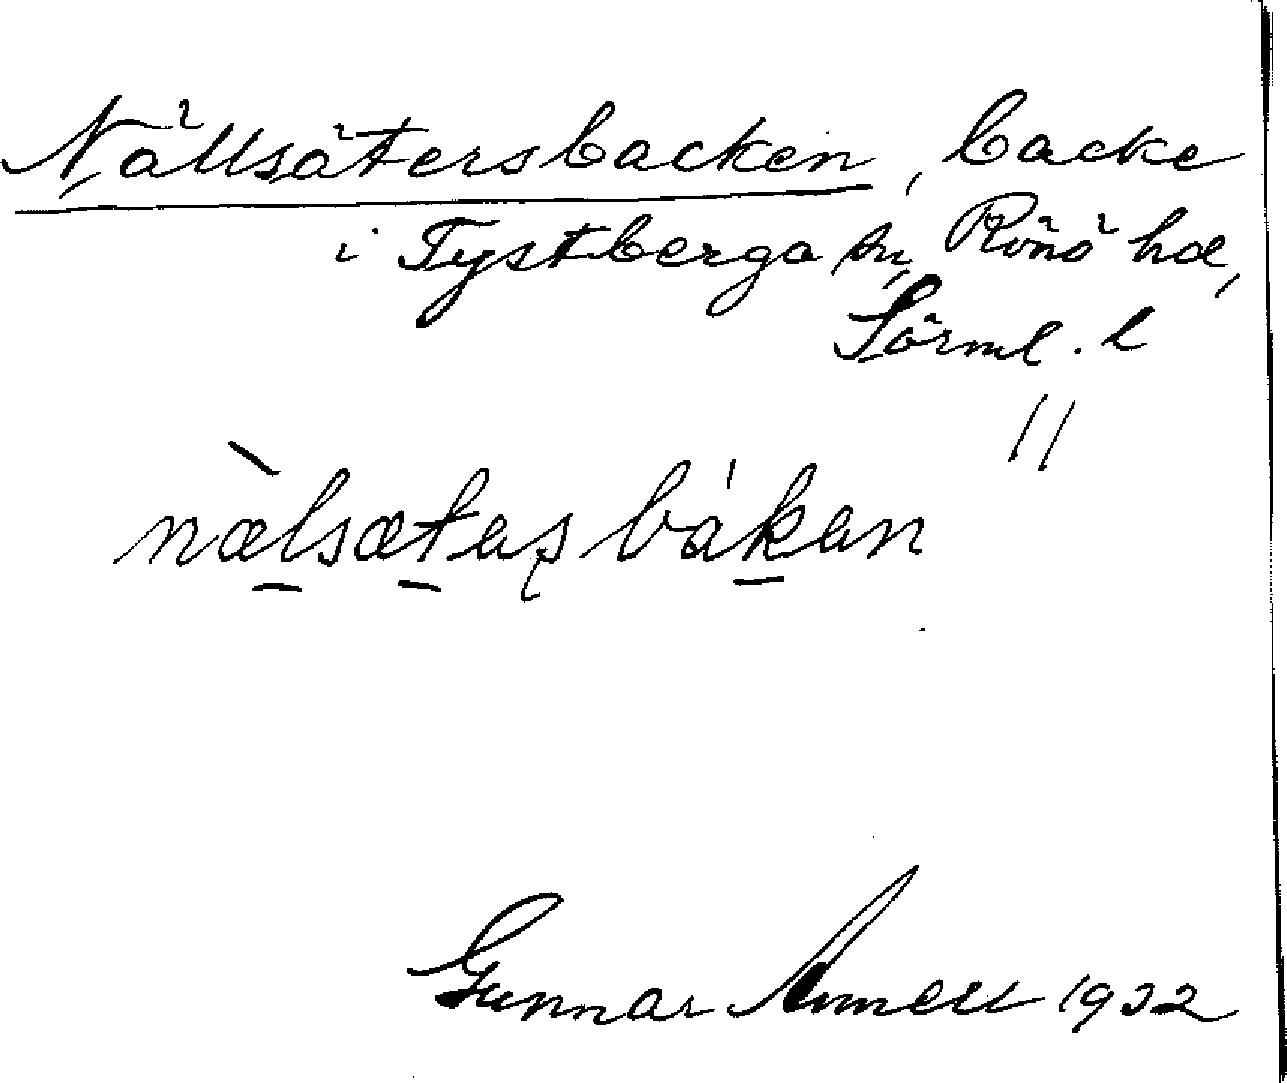 Nällsätersbacken, backe
i Tystberga sn, Rönö hd,
Sörml. l
//
nælsætas bákan
Gunnar 1932